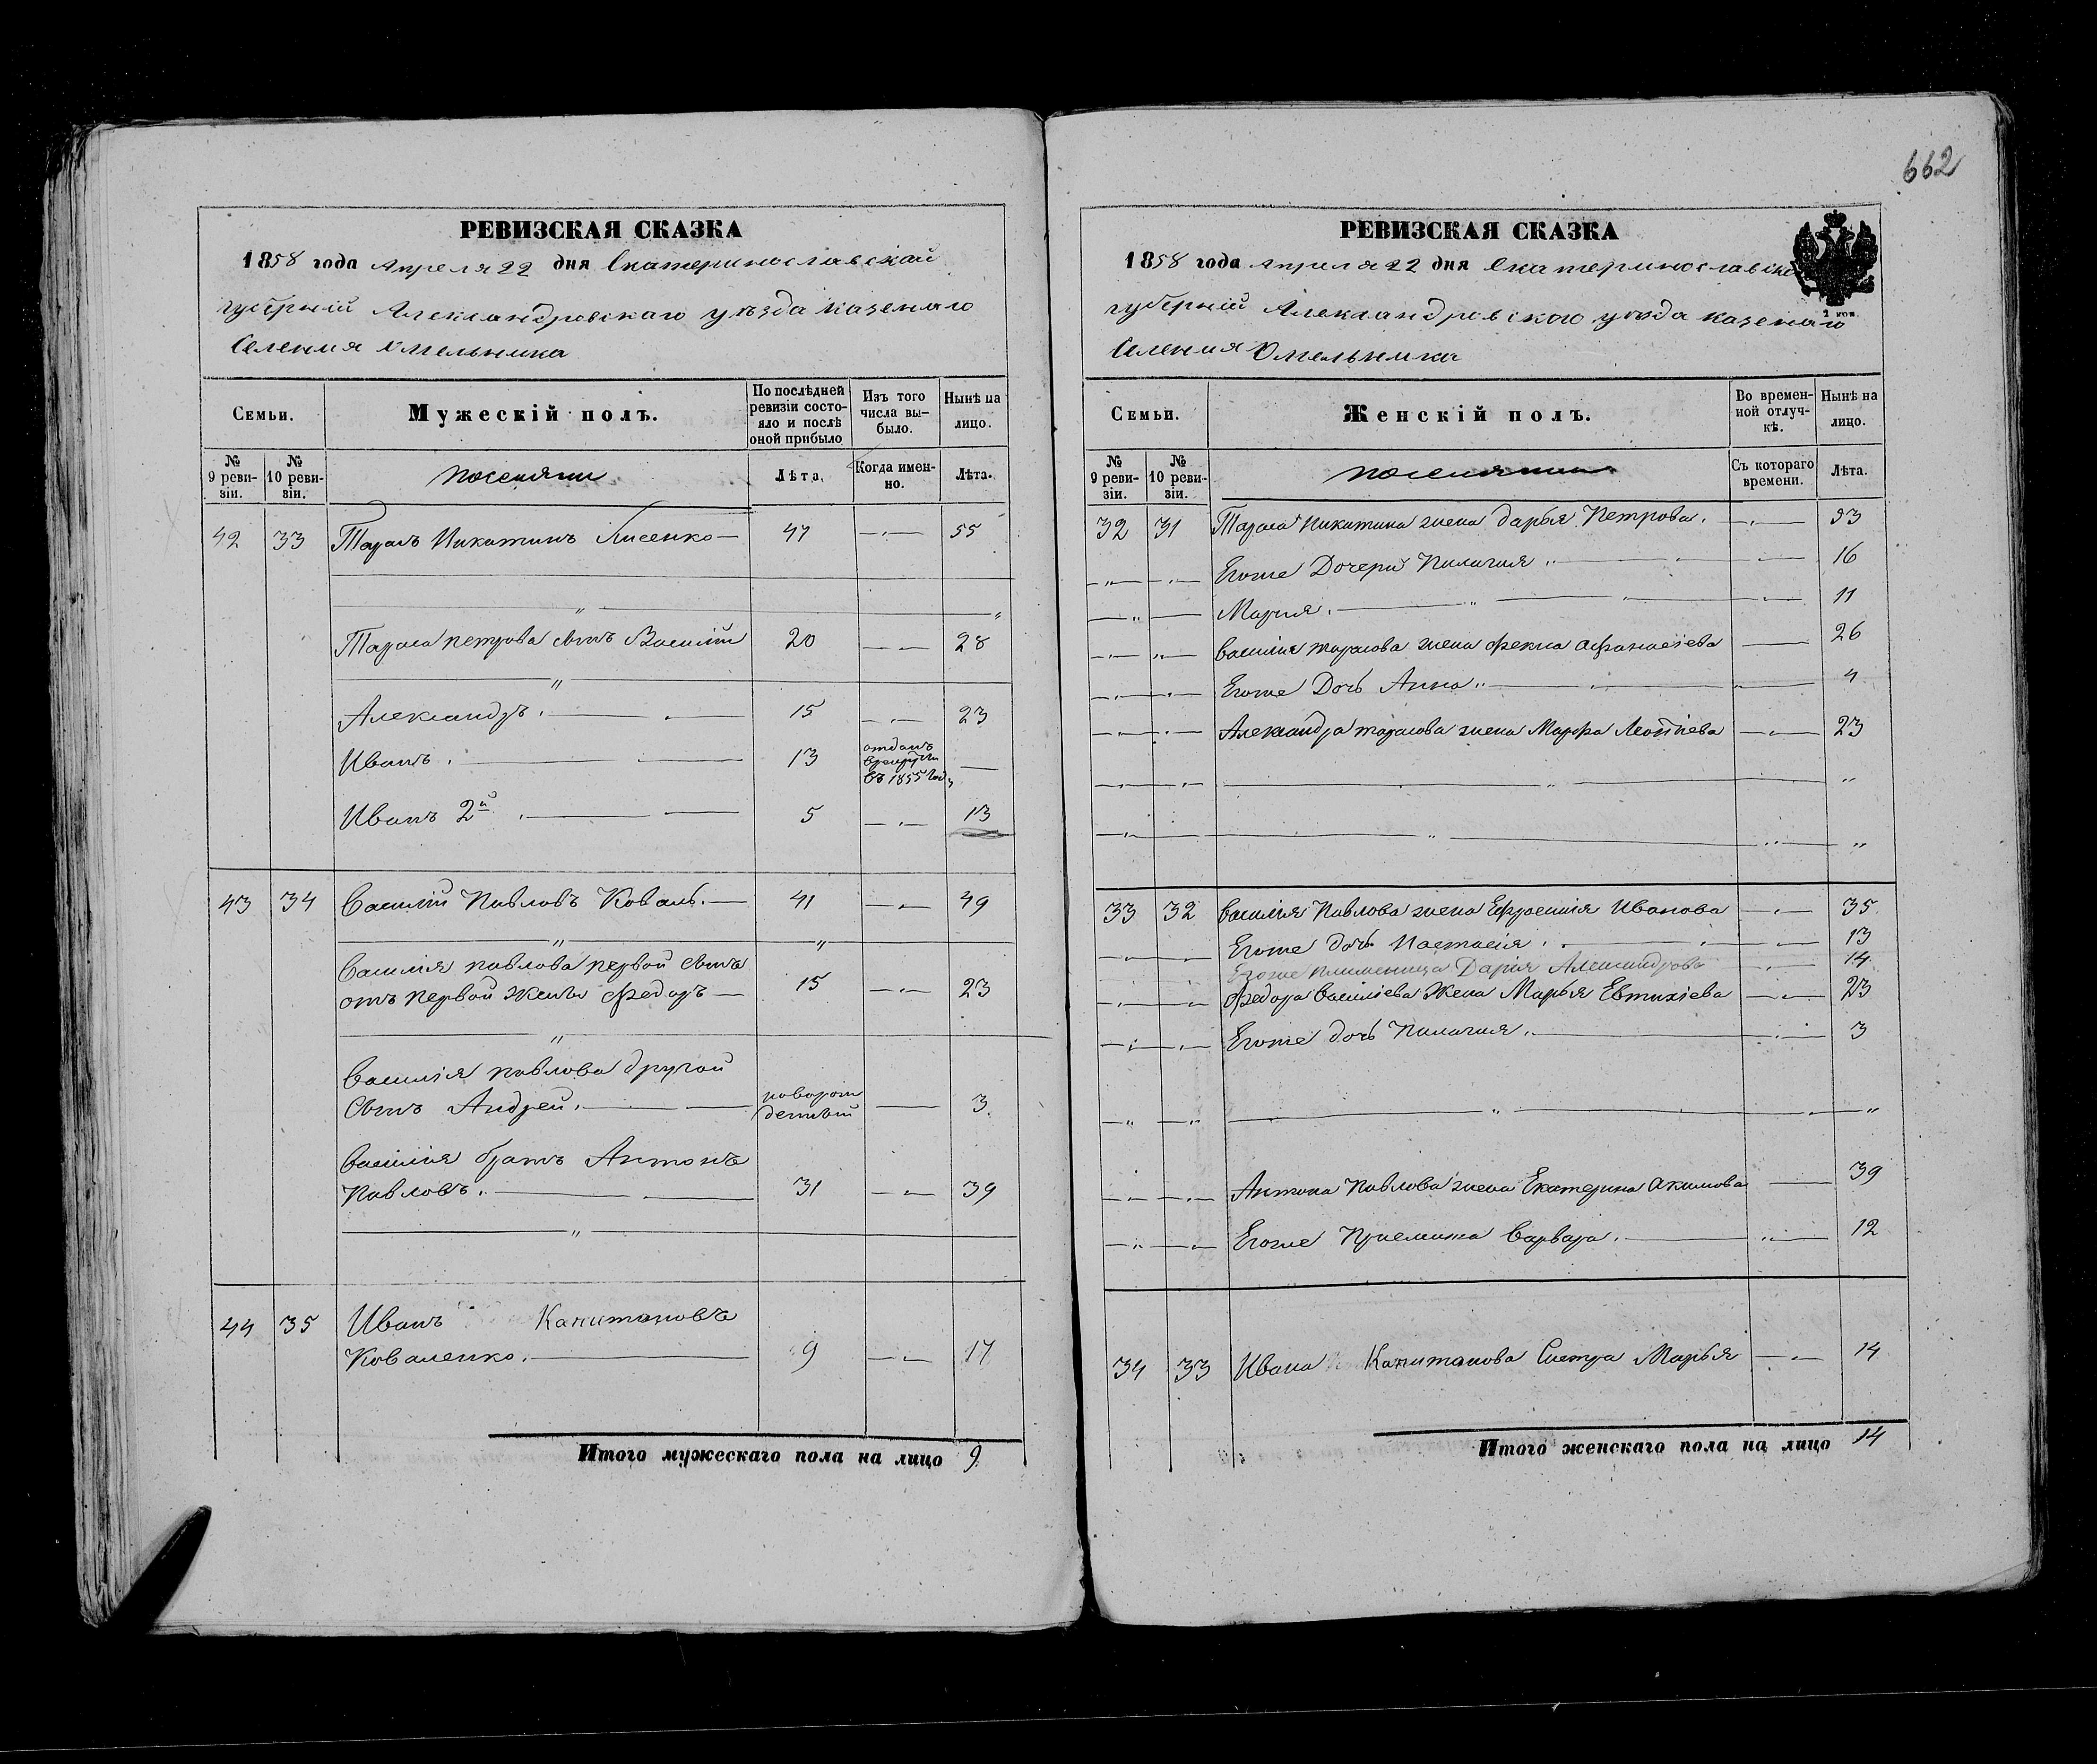 662
РЕВИЗСКАЯ СКАЗКА
1858 года Апреля 22 дня Екатеринославской
губерній Александровскаго уѣзда казенаго
Селения Омельника
Семьи.
Мужескій полъ.
По послѣдней ревизіи состояло и послѣ оной прибыло
Изъ того числа выбыло.
Нынѣ на лицо.
№ 9 ревизіи.
№ 10 ревизіи.
поселяни
Лѣта.
Когда именно.
Лѣта.
42 33 Тарасъ Никитинъ Лисенко 47 55
Тараса петрова сынъ Василій 20 28
Александръ. 15 23
Иванъ. 13 отданъ в рекруты въ 1855 году
Иванъ 2й 5 13
43 34 Василій Павловъ Коваль. 41 49
Василия павлова первой сынъ
отъ первой жены Федоръ 15 23
Василия павлова другой
Сынъ Андрей. 3
Василия братъ Антонъ
Павловъ. 31 39
44 35 Иванъ Капитановъ
Коваленко. 9 17
Итого мужескаго пола на лицо 9
РЕВИЗСКАЯ СКАЗКА
1858 года апреля 22 дня Екатеринославской
губерній Александровского уѣзда казенаго
Селения Омельника
2 коп.
Семьи.
Женскій полъ.
Во временной отлучкѣ.
Нынѣ на лицо.
№ 9 ревизіи.
№ 10 ревизіи.
поселянки
Съ котораго времени.
Лѣта.
32 31 Тараса Никитина жена дарья Петрова. 53
Егоже Дочери Пилагия 16
Мария. 11
Василия тарасова жена Фекла Афанасіева 26
Егоже Дочь Анна 4
Александра тарасова жена Марфа Леонтіева 23
33 32 Василия Павлова жена Ефросинія Иванова 35
Егоже дочь Настасія. 13
Егоже племеница Дария Александрова 14
Федора Василіева Жена Марья Евтихіева 23
Егоже дочь Пилагия. 3
Антона Павлова жена Екатерина Акимова 39
Егоже Приемыша Варвара. 12
34 33 Ивана Капитанова Сестра Марья 14
Итого женскаго пола на лицо 14